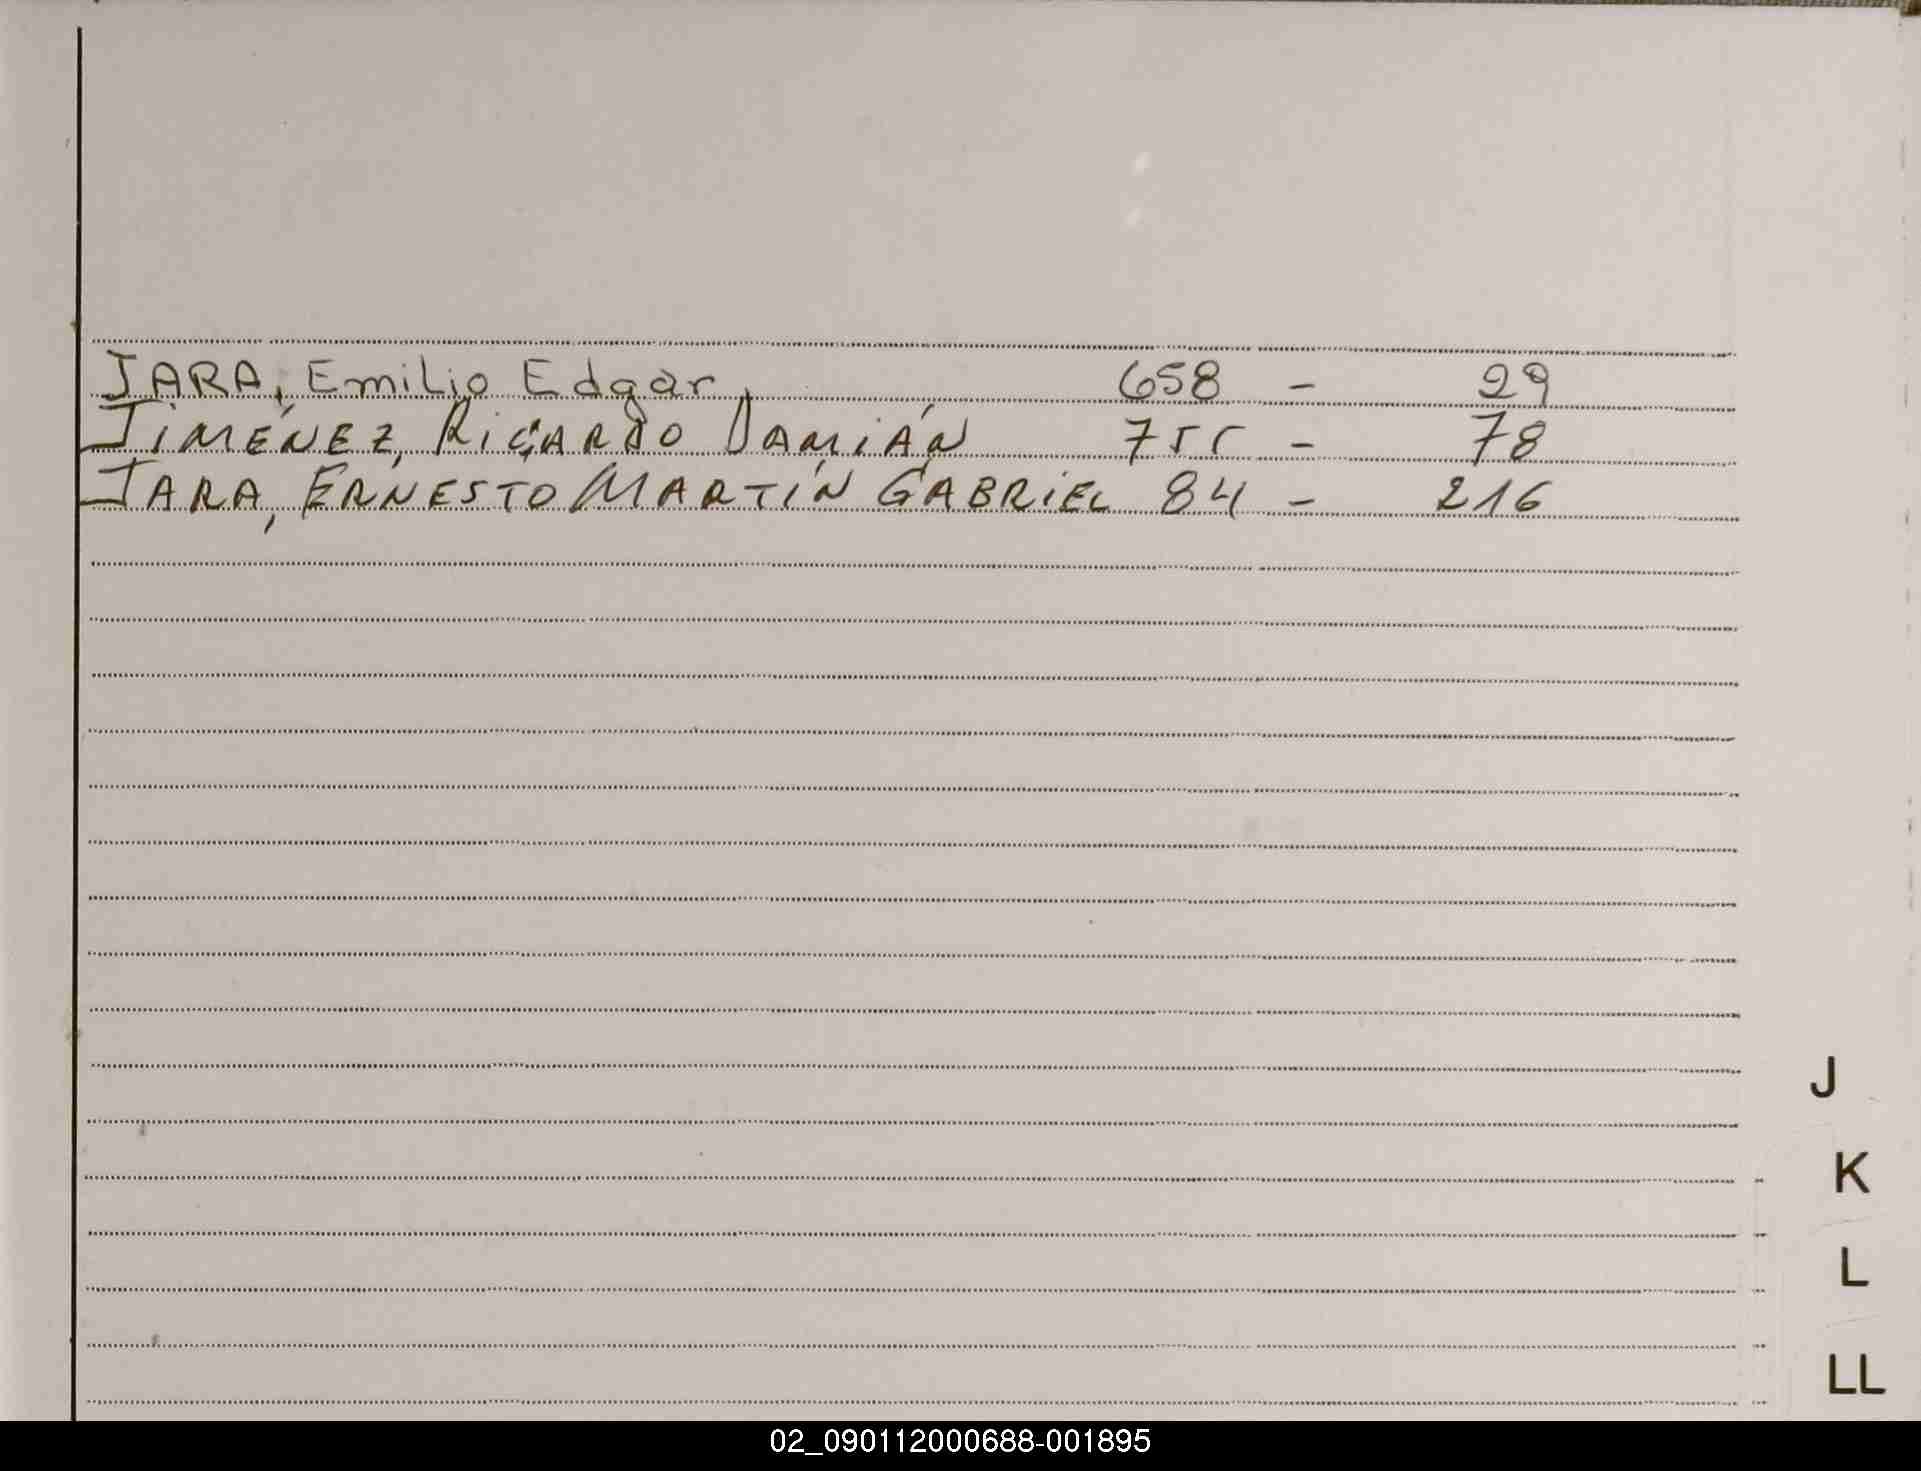 JARA, Emilio Edgar 658 - 29
JIMÉNEZ, RICARDO DAMIÁN 755 - 78
JARA, ERNESTO MARTÍN GABRIEL 84 - 216
J
K
L
LL
02_090112000688-001895